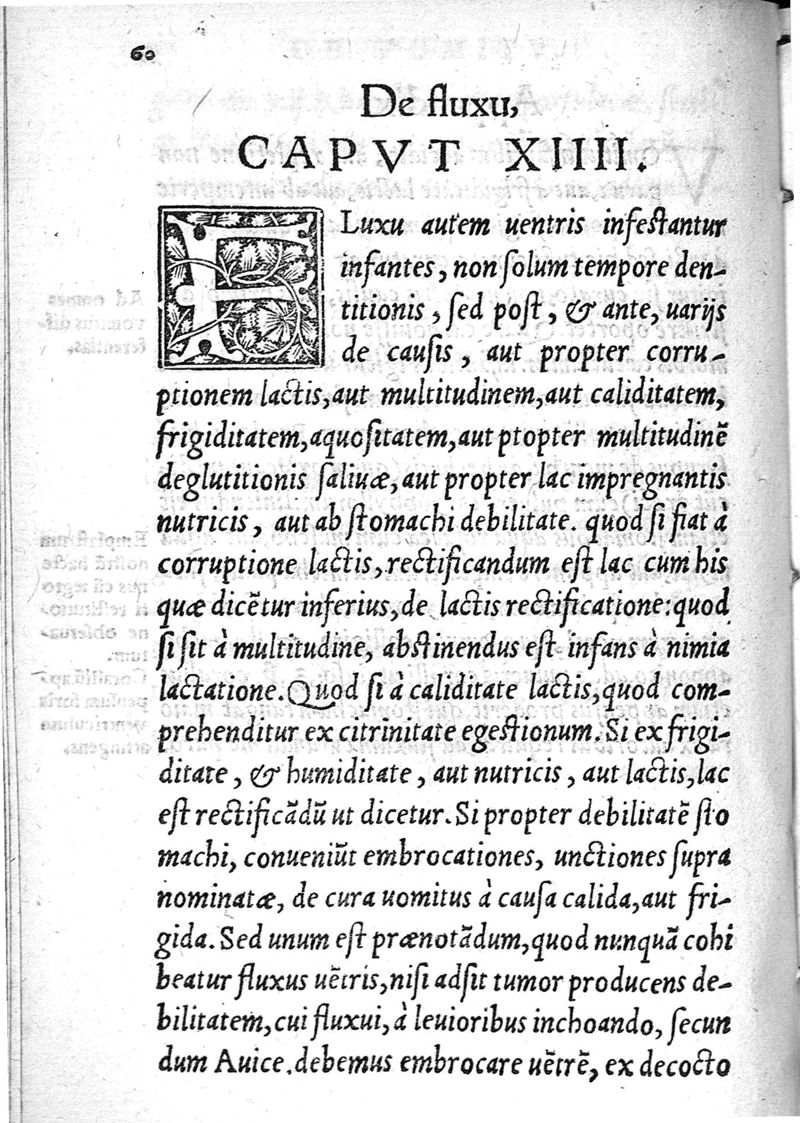 60
De fluxu,
CAPVT XIIII.
FLuxu autem uentris infestantur
infantes, non solum tempore den-
titionis, sed post, & ante, uarijs
de causis, aut propter corru-
ptionem lactis, aut multitudinem, aut caliditatem,
frigiditatem, aquositatem, aut ptopter multitudinẽ
deglutitionis saliuæ, aut propter lac impregnantis
nutricis, aut ab stomachi debilitate. quod si fiat à
corruptione lactis, rectificandum est lac cum his
quæ dicẽtur inferius, de lactis rectificatione: quod
si sit à multitudine, abstinendus est infans à nimia
lactatione. Quod si à caliditate lactis, quod com-
prehenditur ex citrinitate egestionum. Si ex frigi-
ditate, & humiditate, aut nutricis, aut lactis, lac
est rectificãdũ ut dicetur. Si propter debilitatẽ sto
machi, conueniũt embrocationes, unctiones supra
nominatæ, de cura uomitus à causa calida, aut fri-
gida. Sed unum est prænotãdum, quod nunquã cohi
beatur fluxus uẽtris, nisi adsit tumor producens de-
bilitatem, cui fluxui, à leuioribus inchoando, secun
dum Auice. debemus embrocare uẽtrẽ, ex decocto